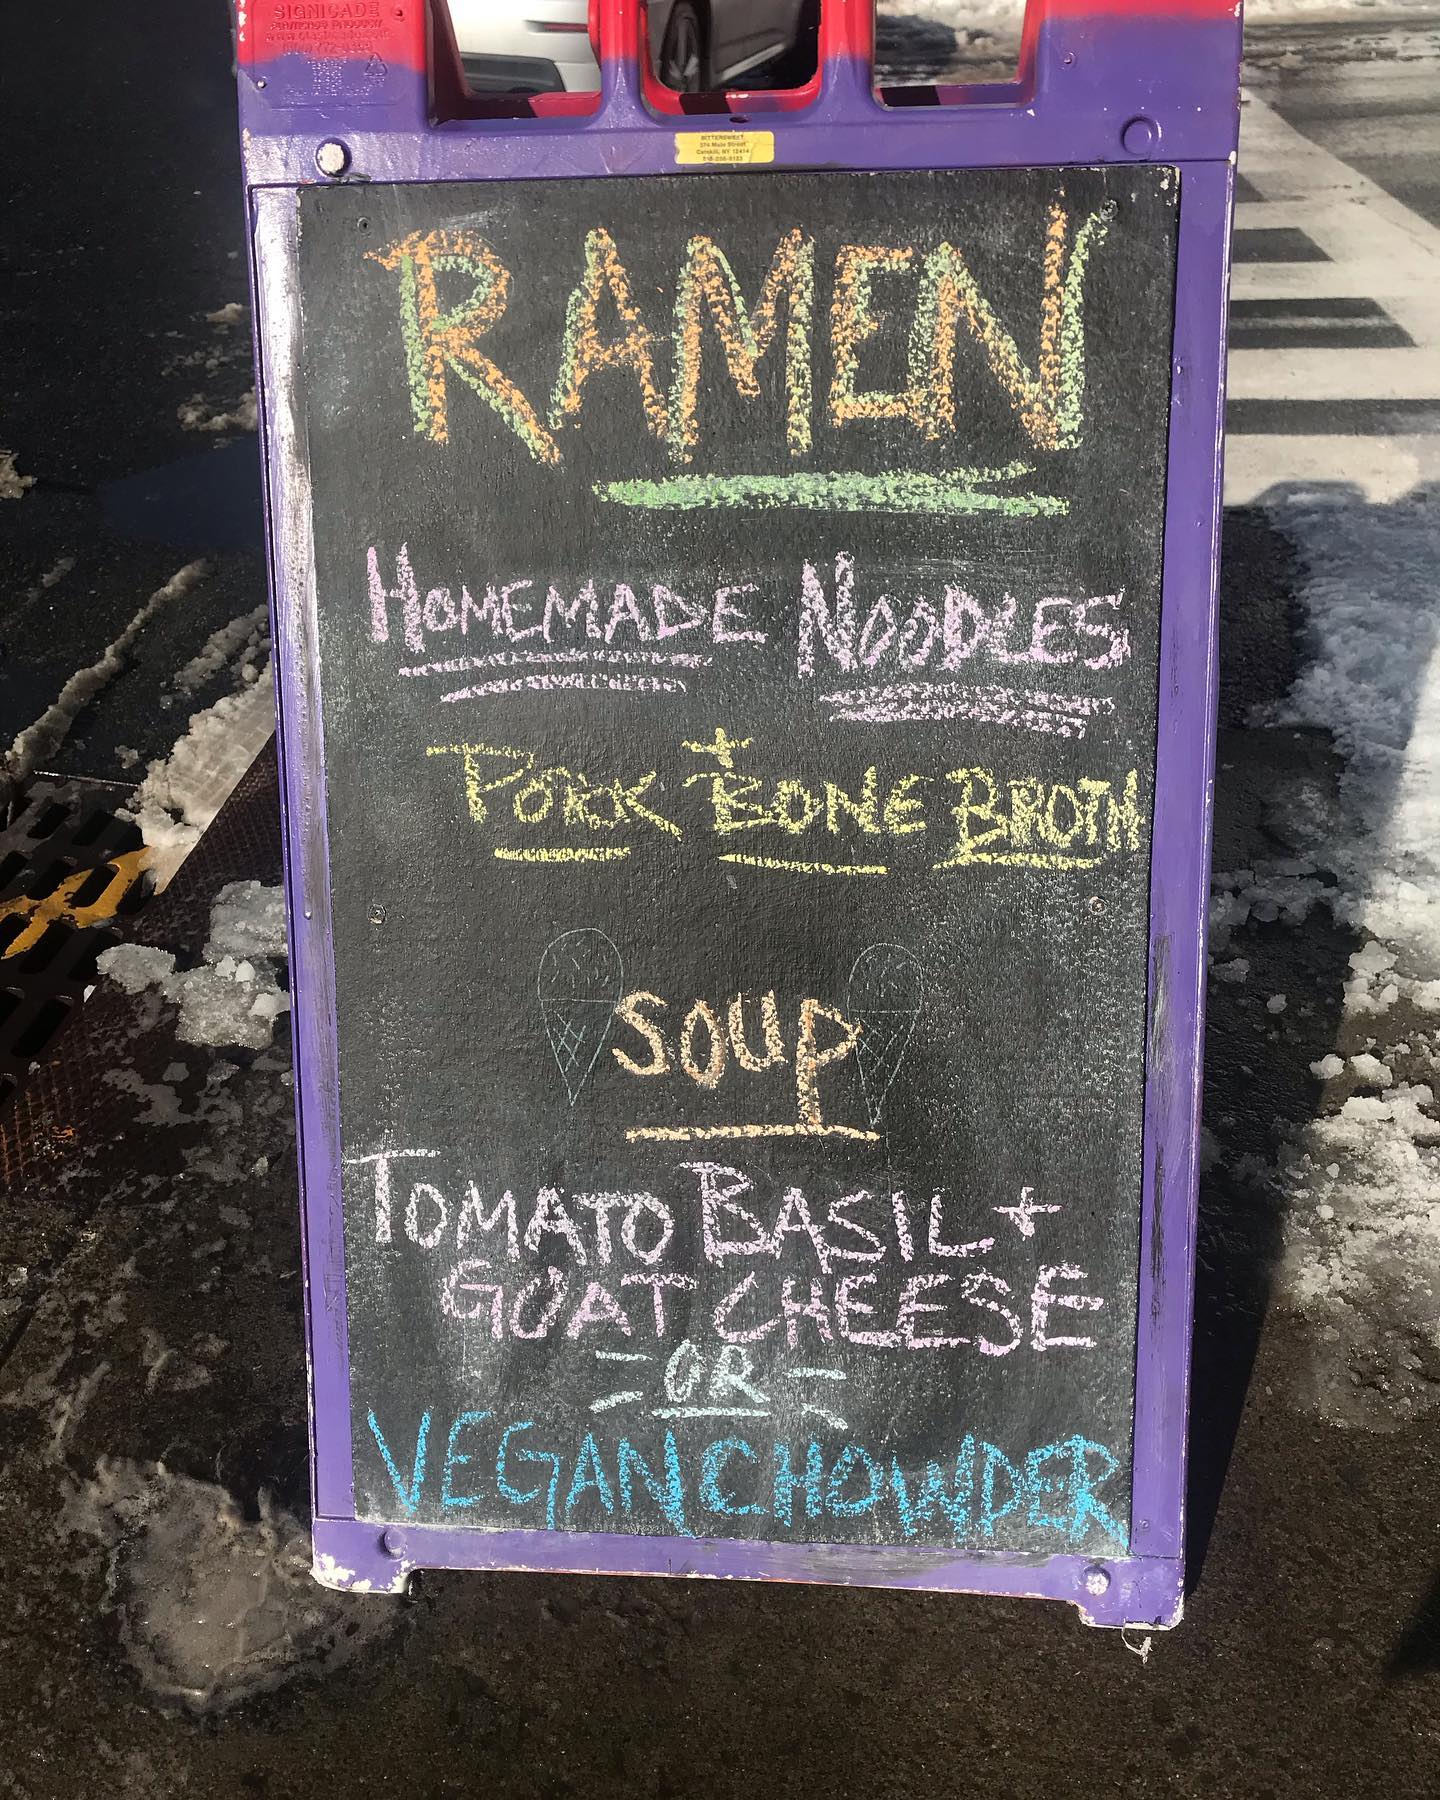 SIGNICADE
BITTERSWEET
374 Main Street
Catskill, NY 12414
RAMEN
HOMEMADE NOODLES
PORK + BONE BROTH
SOUP
TOMATO BASIL +
GOAT CHEESE
OR
VEGAN CHOWDER